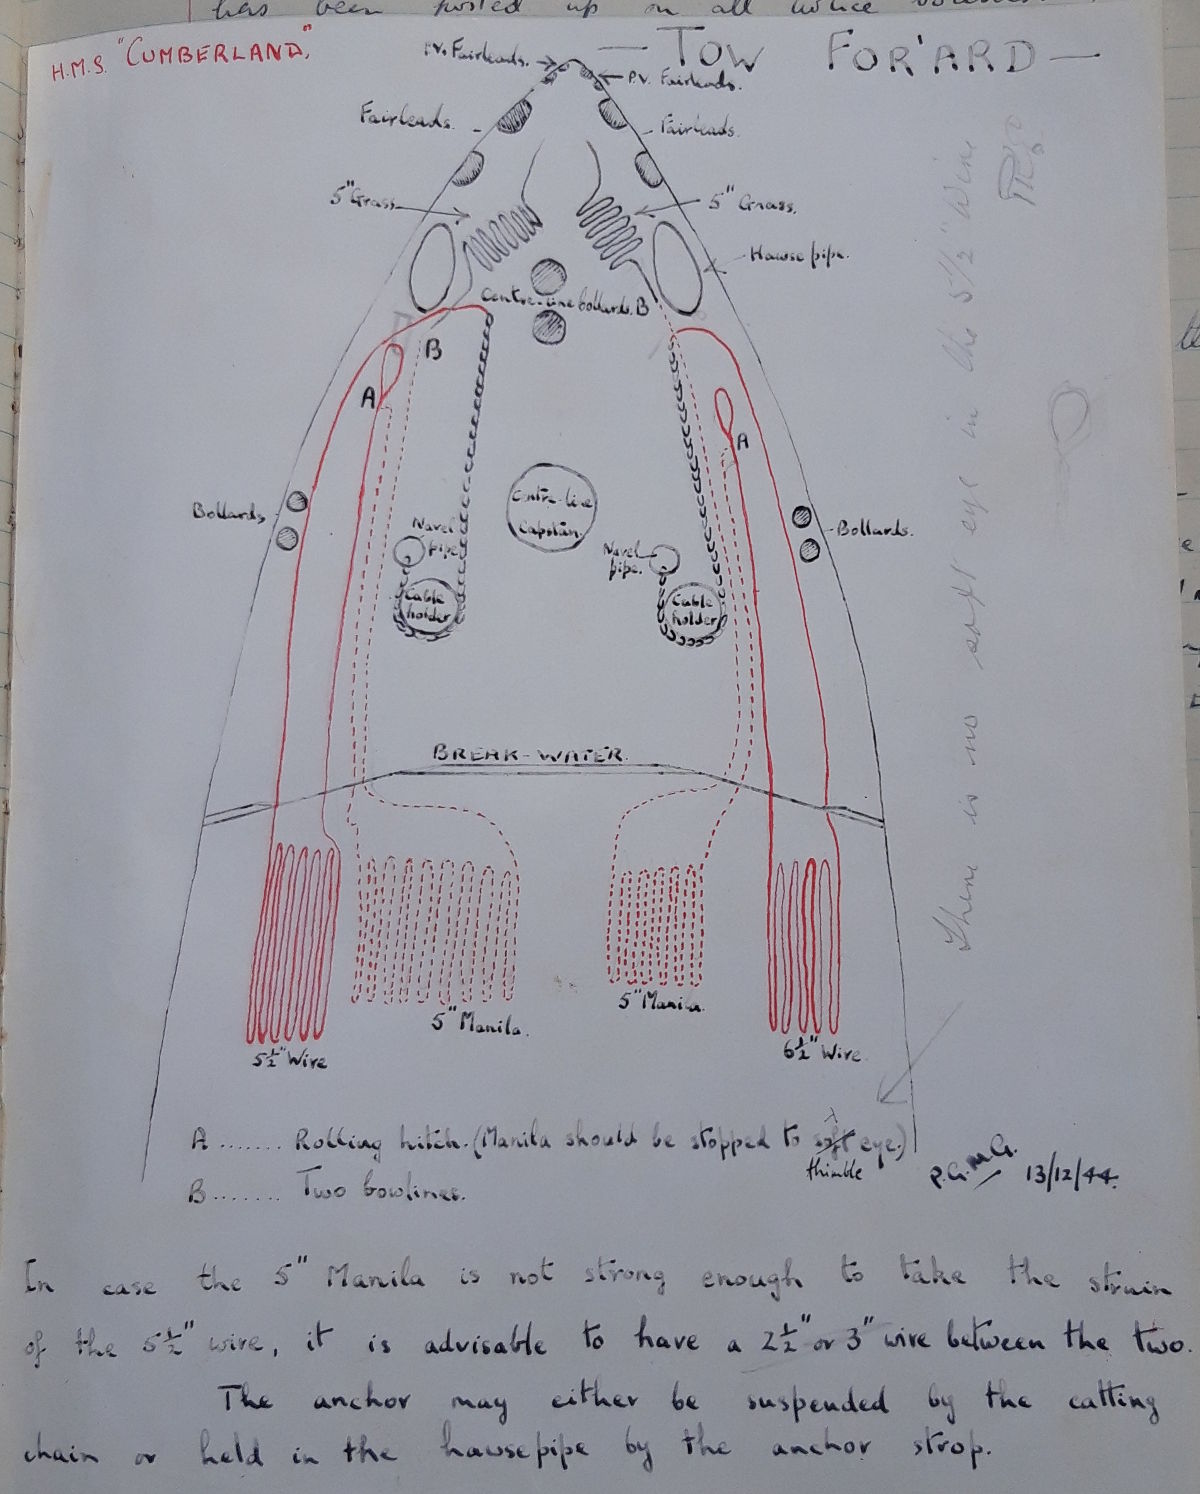 has been posted up on all notice
H.M.S. "CUMBERLAND."
— TOW FOR'ARD —
P.V. Fairleads.
P.V. Fairleads.
Fairleads.
Fairleads.
5" Grass
5" Grass.
Hawse pipe.
Centre-line bollards. B
B
A
A
Bollards
Centre-line
Capstan.
Bollards.
Navel
pipe
Navel
pipe.
Cable
holder
Cable
holder
BREAK-WATER.
5" Manila.
5" Manila.
5½" Wire
6½" Wire.
There is no soft eye in the 5½" Wire
A ....... Rolling hitch. (Manila should be stopped to soft eye.)
thimble
B ....... Two bowlines.
P.G.McG. 13/12/44.
In case the 5" Manila is not strong enough to take the strain
of the 5½" wire, it is advisable to have a 2½" or 3" wire between the two.
The anchor may either be suspended by the catting
chain or held in the hawsepipe by the anchor strop.